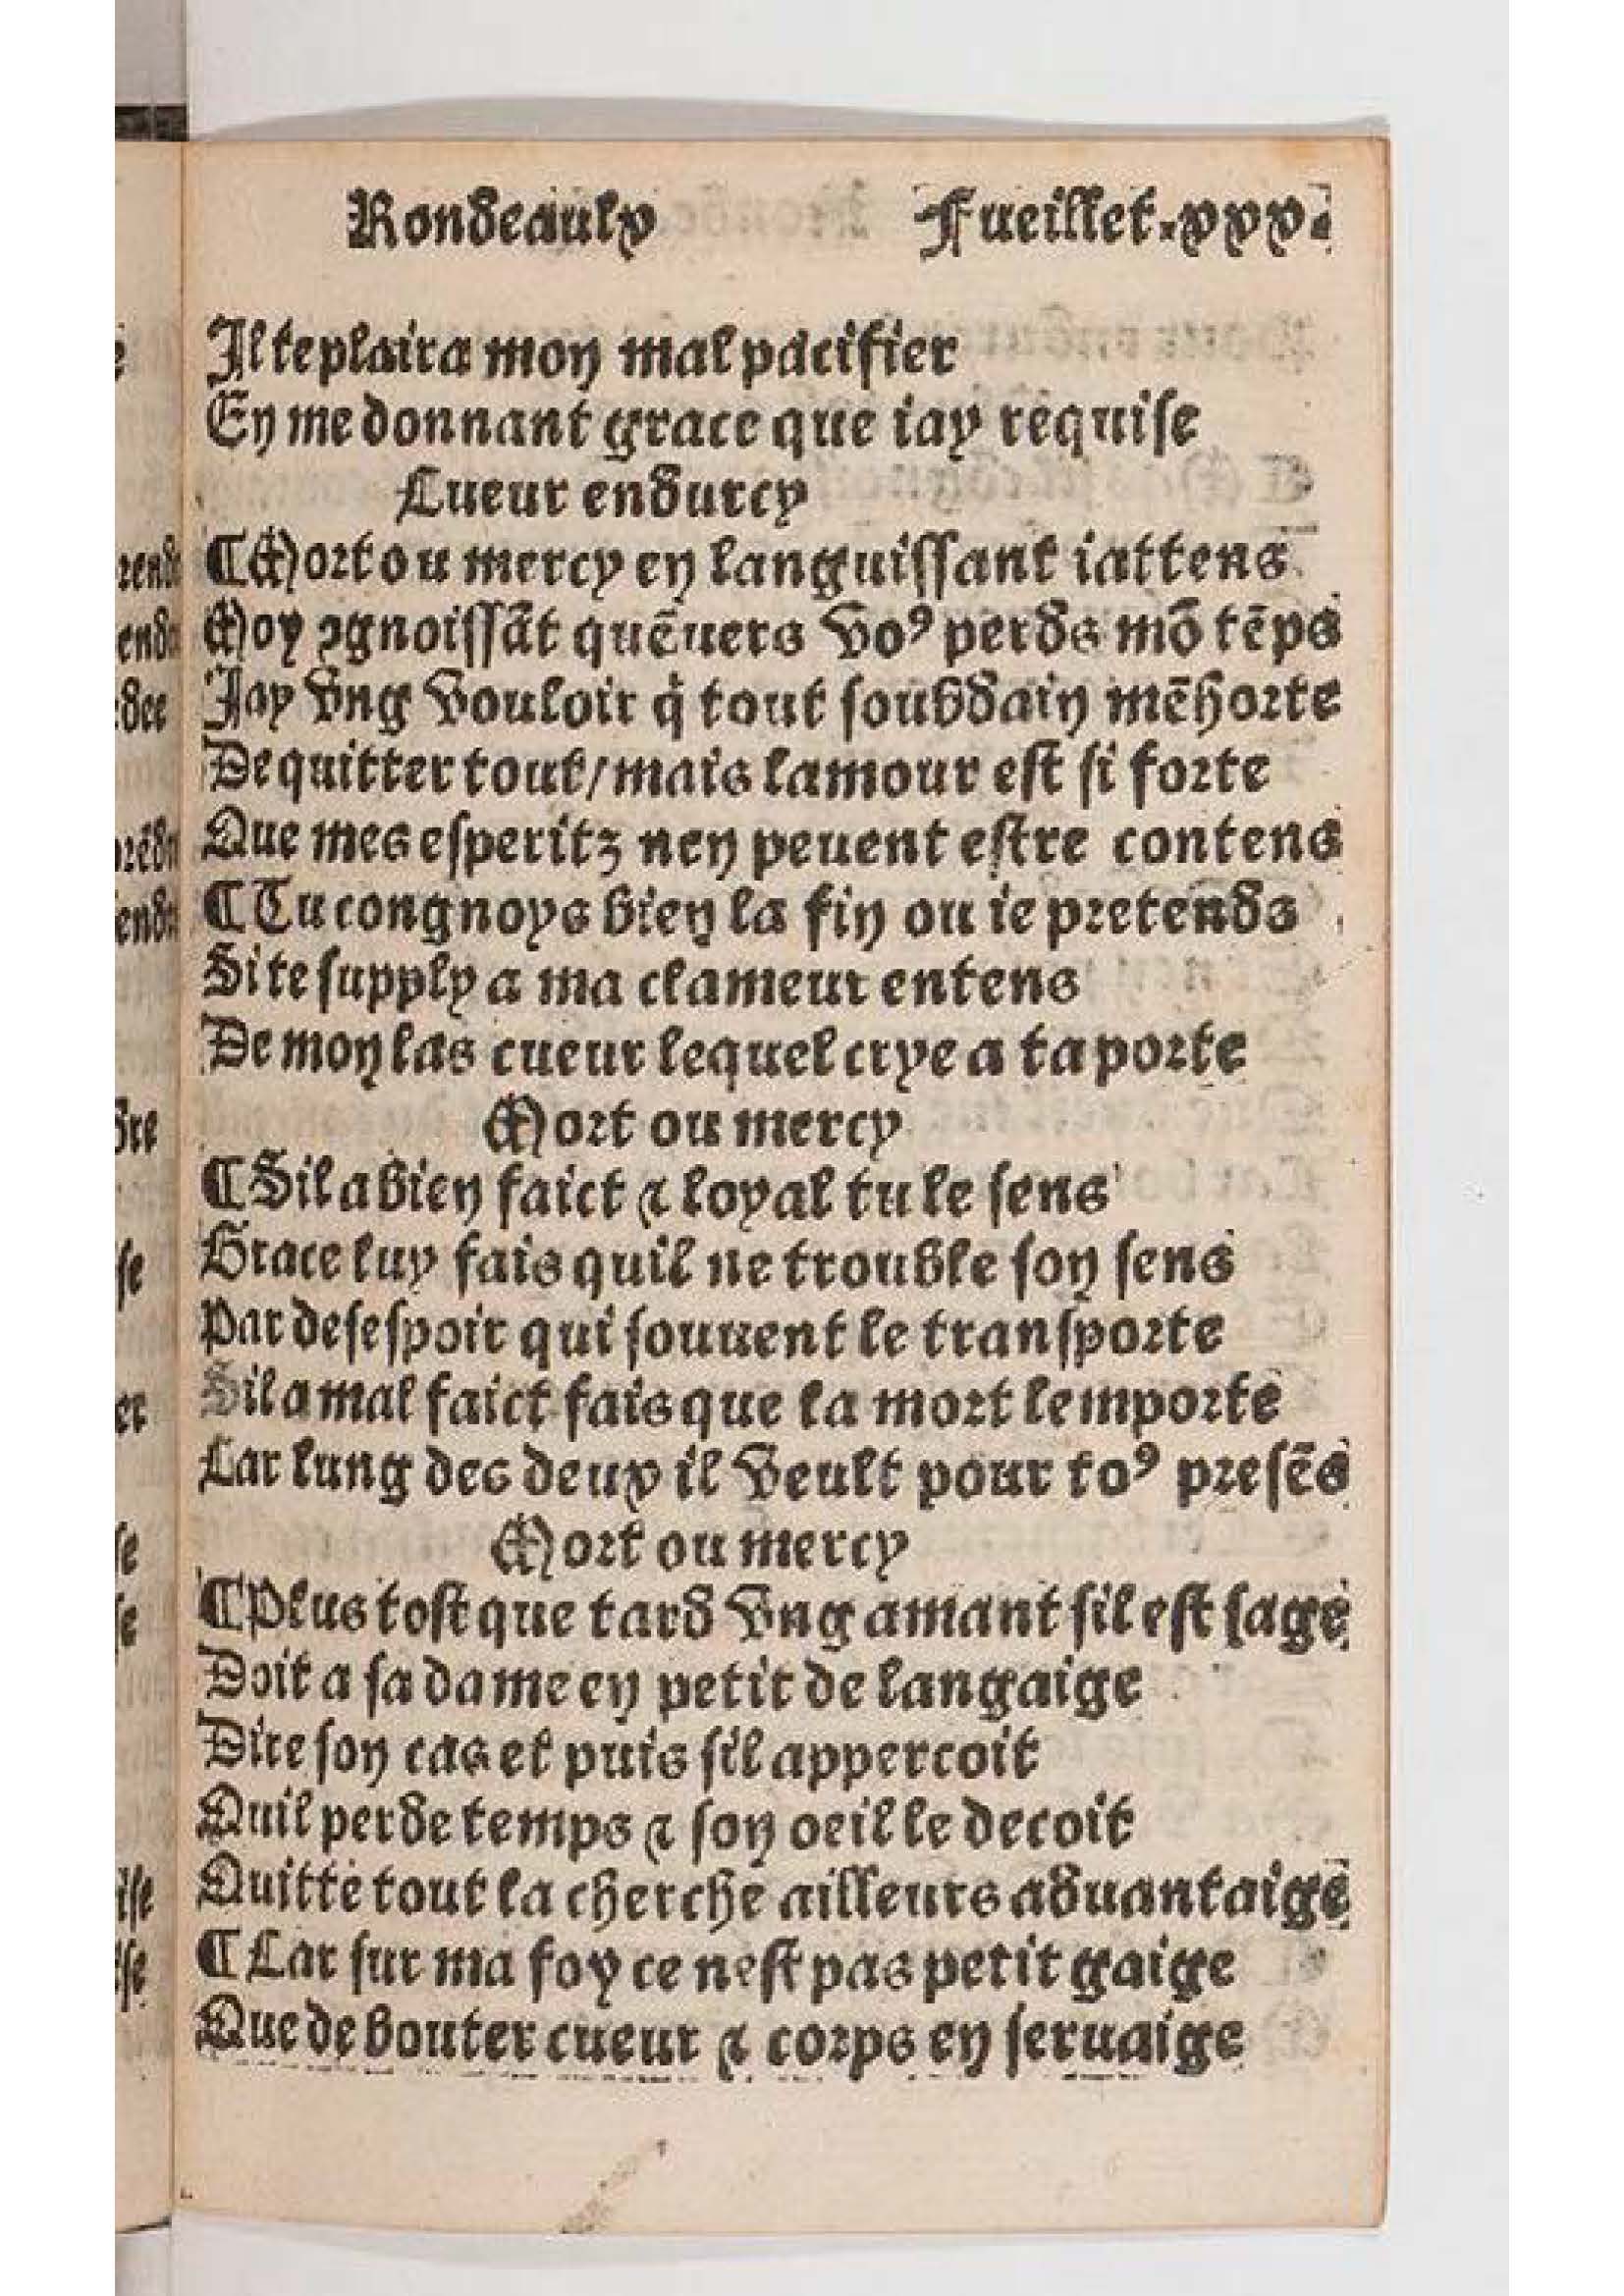 Rondeaulx Fueillet.xxx.
Il te plaira mon mal pacifier
En me donnant grace que iay requise
Cueur endurcy
¶Mort ou mercy en languissant iattens
Moy ↄgnoissãt quẽuers voꝰ perds mõ tẽps
Jay vng vouloir q̃ tout soubdain mẽhorte
De quitter tout/mais lamour est si forte
Que mes esperitz nen peuent estre contens
¶Tu congnoys bien la fin ou ie pretends
Si te supply a ma clameur entens
De mon las cueur lequel crye a ta porte
Mort ou mercy
¶Sil a bien faict ⁊ loyal tu le sens
Grace luy fais quil ne trouble son sens
Par desespoir qui souuent le transporte
Sil a mal faict fais que la mort lemporte
Car lung des deux il veult pour toꝰ presẽs
Mort ou mercy
¶Plus tost que tard vng amant sil est sage
Doit a sa dame en petit de langaige
Dire son cas et puis sil appercoit
Quil perde temps ⁊ son oeil le decoit
Quitte tout la cherche ailleurs aduantaige
¶Car sur ma foy ce nest pas petit gaige
Que de bouter cueur ⁊ corps en seruaige